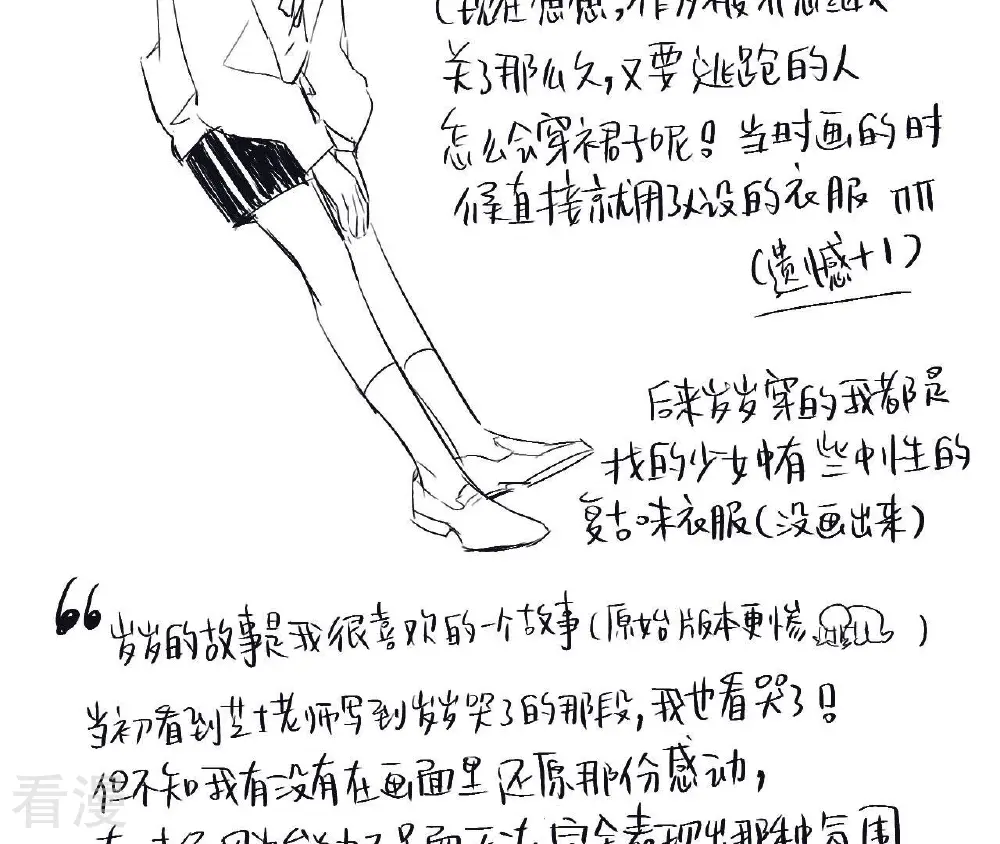 (现在想想,
关了那么久,又要逃跑的人
怎么会穿裙子呢!当时画的时
候直接就用了人设的衣服 ΠΠ
(遗憾+1)
后来岁岁穿的我都是
找的少女中有些中性的
复古味衣服(没画出来)
66 岁岁的故事是我很喜欢的一个故事(原始版本更惨 )
当初看到芝士老师写到岁岁哭了的那段,我也看哭了!
但不知我有没有在画面里还原那份感动,
完全表现出那种氛围
看漫